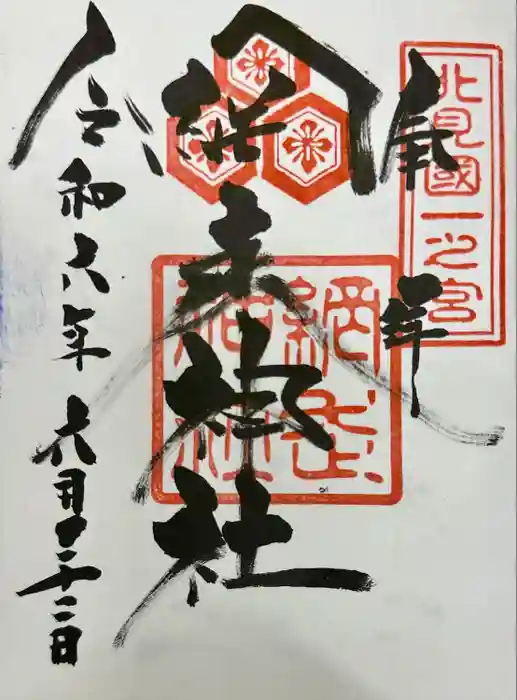 北見國一之宮
奉拝
網走神社
網走神社
令和六年六月二十二日